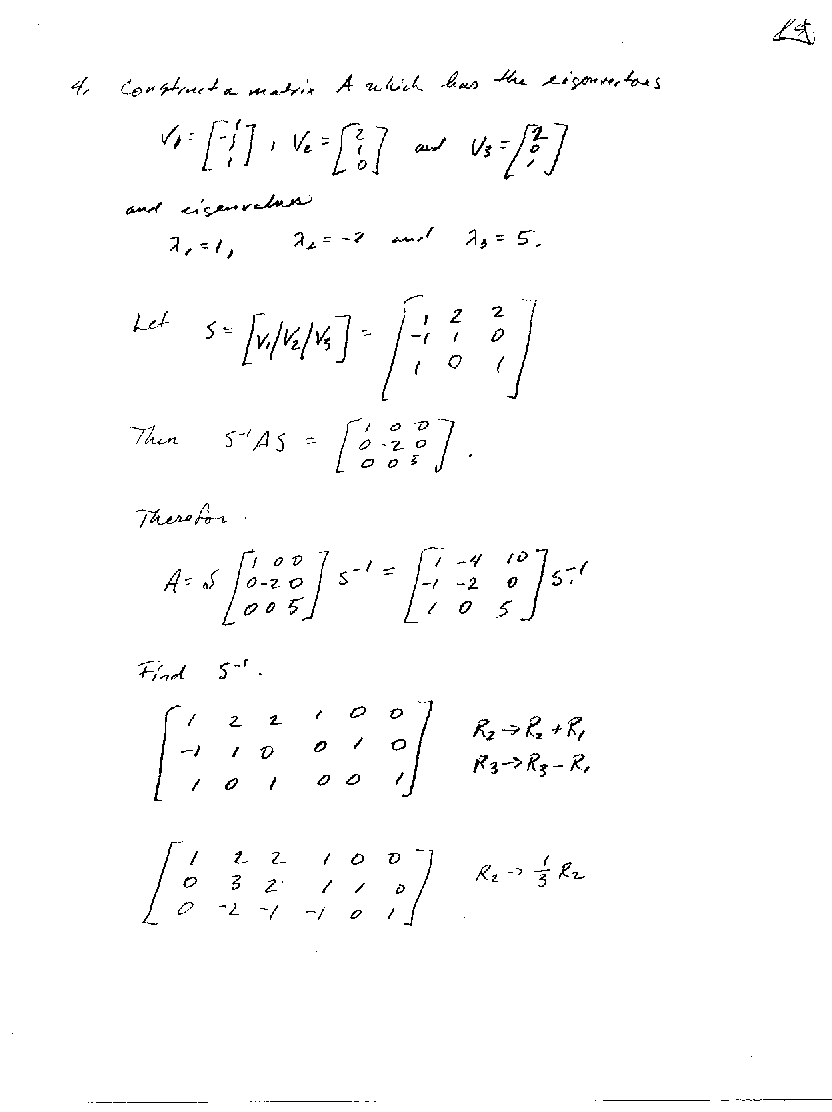 4. Construct a matrix A which has the eigenvectors
V1 = [1 -1 1], V2 = [2 1 0] and V3 = [2 0 1]
and eigenvalues
λ1 = 1, λ2 = -2 and λ3 = 5.
Let S = [V1/V2/V3] = [1 2 2
-1 1 0
1 0 1]
Then S⁻¹AS = [1 0 0
0 -2 0
0 0 5].
Therefor.
A = S [1 0 0
0 -2 0
0 0 5] S⁻¹ = [1 -4 10
-1 -2 0
1 0 5] S⁻¹.
Find S⁻¹.
[1 2 2 1 0 0
-1 1 0 0 1 0
1 0 1 0 0 1]
R2 → R2 + R1
R3 → R3 - R1
[1 2 2 1 0 0
0 3 2 1 1 0
0 -2 -1 -1 0 1]
R2 → 1/3 R2